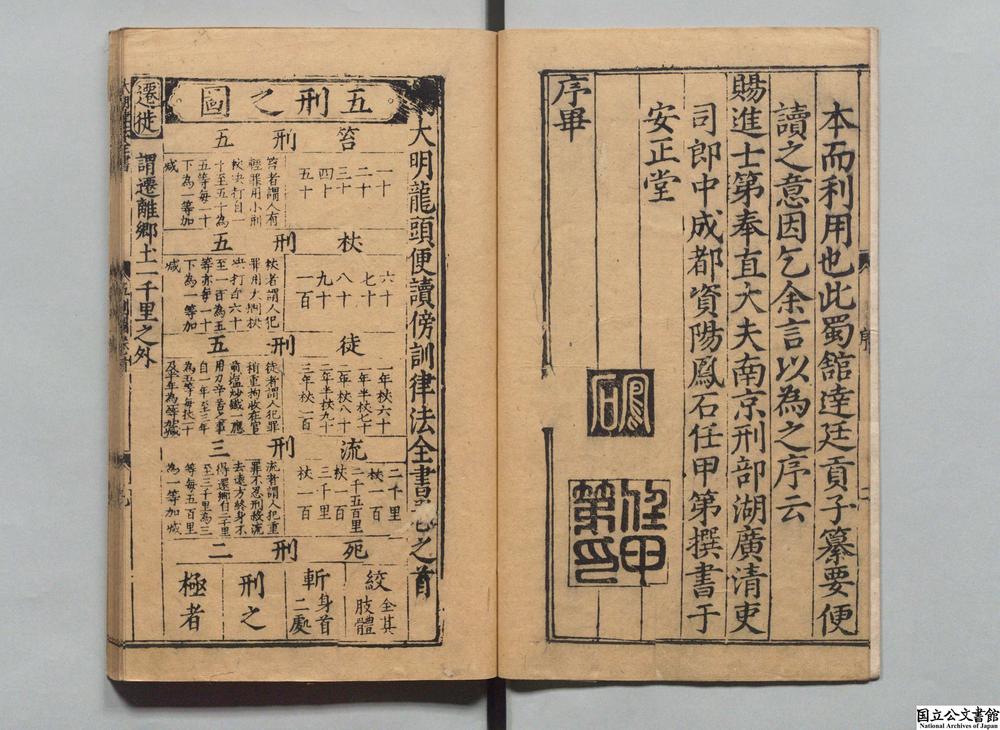 本而利用也此蜀舘達廷貢子纂要便
讀之意因乞余言以為之序云
賜進士第奉直大夫南京刑部湖廣清吏
司郎中成都資陽鳳石任甲第撰書于
安正堂
序畢
鳳石
任甲第印
序
大明龍頭便讀傍訓律法全書卷之首
五刑之圖
笞刑五
一十
二十
三十
四十
五十
笞者謂人有
輕罪用小荆
杖决打自一
十至五十為
五等每一十
下為一等加
减
杖刑五
六十
七十
八十
九十
一百
杖者謂人犯
罪用大荆杖
决打自六十
至一百為五
等亦每一十
下為一等加
减
徒刑五
一年杖六十
一年半杖七十
二年杖八十
二年半杖九十
三年杖一百
徒者謂人犯罪
稍重拘收在官
煎塩炒鐵一應
用力辛苦之事
自一年至三年
為五等每杖一十
及半年為一等加减
流刑三
二千里
杖一百
二千五百里
杖一百
三千里
杖一百
流者謂人犯重
罪不忍刑殺流
去遠方終身不
得還鄉自二千里
至三千里為三
等每五百里
為一等加减
死刑二
絞
全其
肢體
斬
身首
二處
刑之
極者
遷徙
謂遷離鄉土一千里之外
国立公文書館
National Archives of Japan